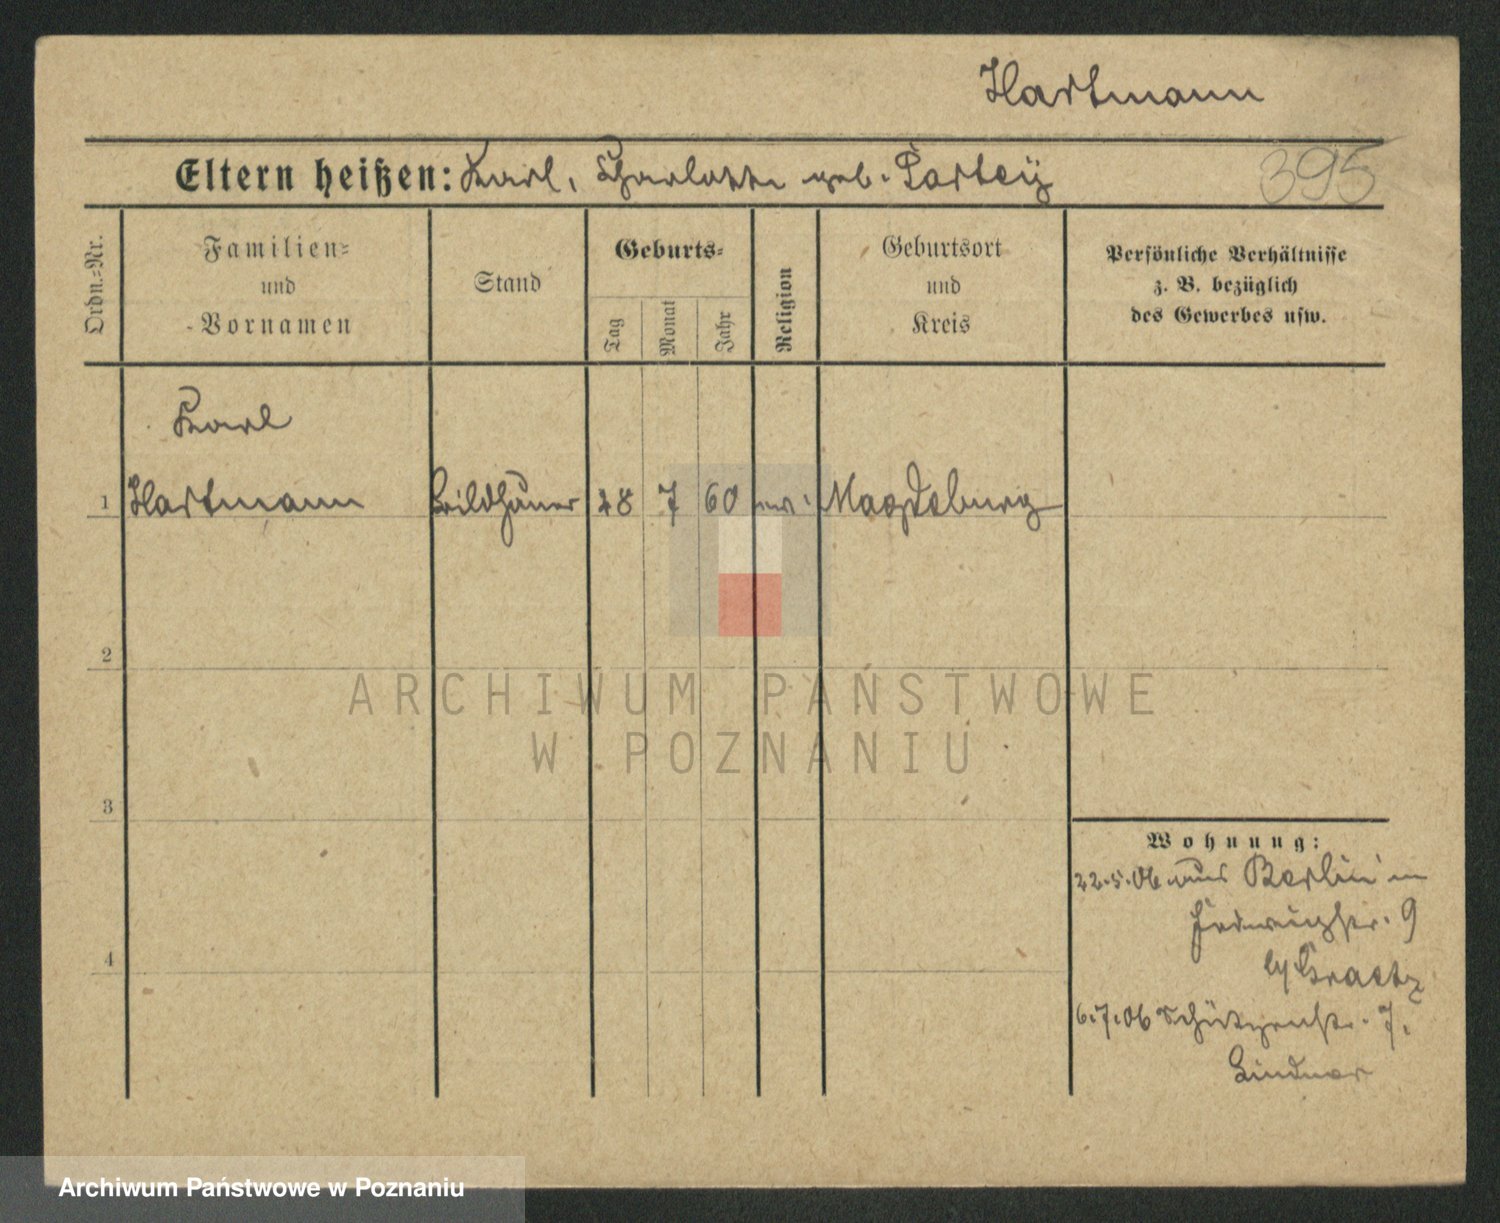 Hartmann
Eltern heißen: Karl, Charlotte geb. Partey
395
Ordn.-Nr.
Familien-
und
Vornamen
Stand
Geburts-
Tag
Monat
Jahr
Religion
Geburtsort
und
Kreis
Persönliche Verhältnisse
z. B. bezüglich
des Gewerbes usw.
Karl
1 Hartmann Bildhauer 28 7 60 ev. Magdeburg
2
3
4
Wohnung:
22.5.06 aus Berlin in
Hedwigstr. 9
b/ Graetz
6.7.06 Schützenstr. 7.
Lindner
ARCHIWUM PAŃSTWOWE
W POZNANIU
Archiwum Państwowe w Poznaniu